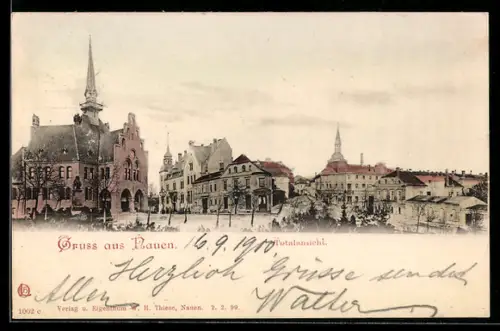 Gruss aus Nauen. 16.9.1900 Totalansicht.
Herzlich Grüsse sendet
Allen Walter
1002 c Verlag u. Eigenthum v. R. Thiese, Nauen. 7. 2. 99.